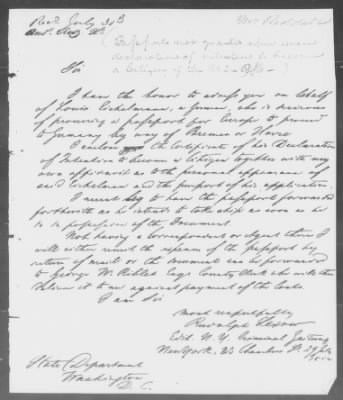 Rec'd July 30
(Passports not granted upon mere
declarations of intention to become
a Citizen of the U.S.
Sir
I have the honor to address you on behalf
of Louis Eichelmann, a German, who is desirous
of procuring a passport for Europe to proceed
to Germany by way of Bremen or Havre
I enclose the Certificate of his Declaration
of Intention to become a Citizen together with my
own affidavit as to the personal appearance of
said Eichelmann and the purport of his application.
I must beg to have the passport forwarded
forthwith as he intends to take ship as soon as he
is in possession of the Document.
Not having a correspondent or agent there I
will either remit the expenses of the passport by
return of mail or the document can be forwarded
to George W. Riblet Esq. County Clerk who will then
deliver it to me against payment of the Costs.
I am Sir
most respectfully
Rudolph Lexow
Edit. N.Y. Criminal Zeitung
New York, 23 Chambers St. 29 July
State Department
Washington
D. C.